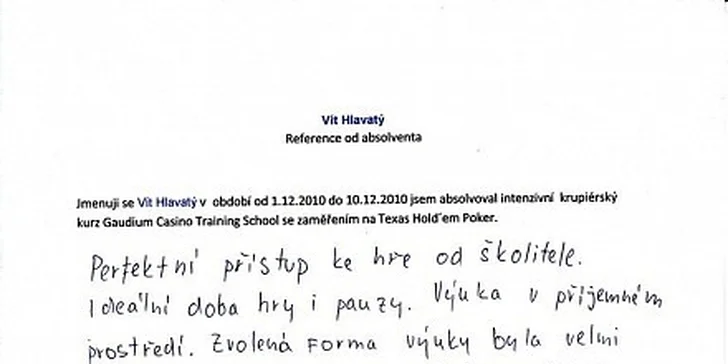 Vít Hlavatý
Reference od absolventa
Jmenuji se Vít Hlavatý v období od 1.12.2010 do 10.12.2010 jsem absolvoval intenzivní krupiérský
kurz Gaudium Casino Training School se zaměřením na Texas Hold´em Poker.
Perfektní přístup ke hře od školitele.
Ideální doba hry i pauzy. Výuka v příjemném
prostředí. Zvolená forma výuky byla velmi